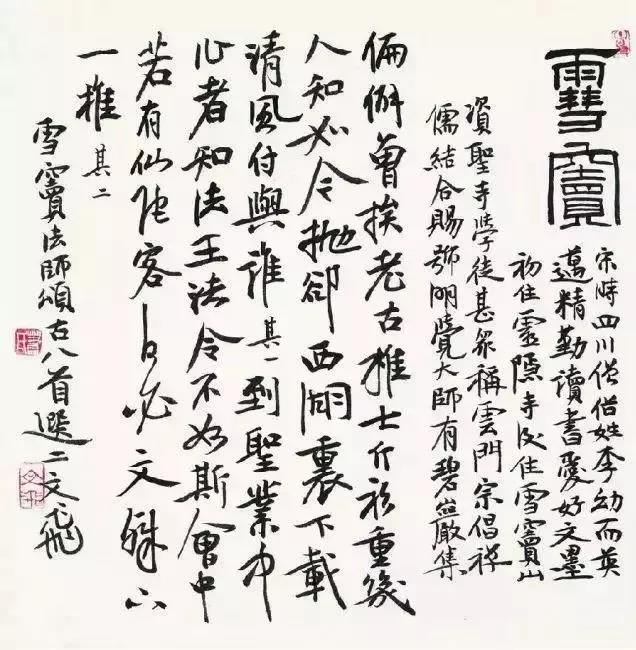 雪竇
宋時四川僧俗姓李幼而英
邁精勤读書愛好文墨
初住靈隱寺後住雪竇山
資聖寺學徒甚眾稱雲門宗倡禅
儒結合賜號明覺大師有碧巖集
偏僻曾挨老古椎七斤衫重幾
人知如今拋卻西湖裏下載
清風付與誰 其一 列聖叢中
作者知法王法令不如斯會中
若有仙陀客何必文殊下
一椎 其二
雪竇法師頌古八首選二文飛